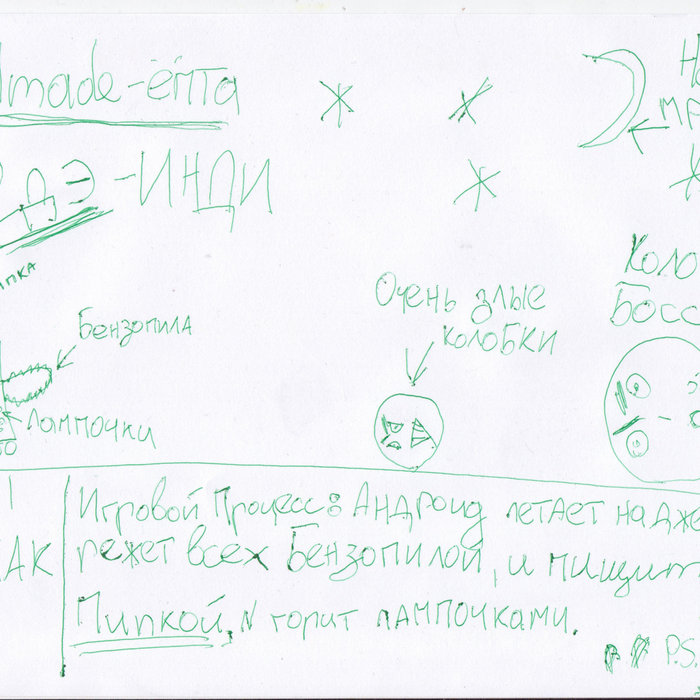 made-ёпта
ДЭ-ИНДИ
Бензопила
Лампочки
Очень злые
колобки
Коло
Босс
Игровой Процесс: Андроид летает на дже
режет всех Бензопилой, и пищит
Пипкой, и горит лампочками.
P.S.